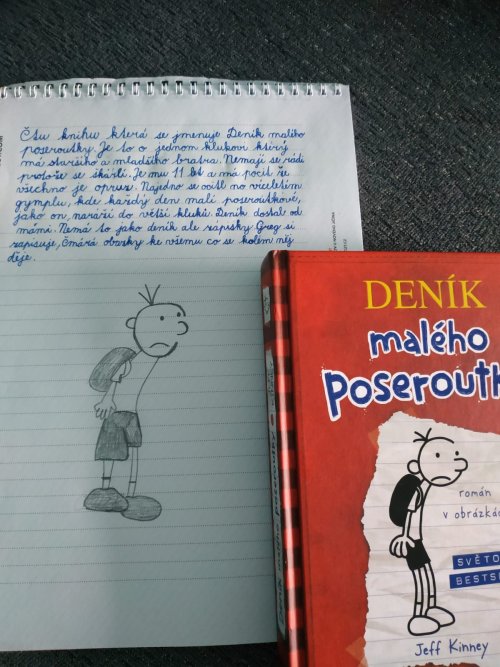 Čtu knihu která se jmenuje Deník malého
poseroutky. Je to o jednom klukovi který
má staršího a mladšího bratra. Nemají se rádi
protože se škádlí. Je mu 11 let a má pocit že
všechno je opruz. Najedno se ocitl na víceletím
gymplu, kde každý den malí poseroutkové,
jako on, naráží do větší kluků. Deník dostal od
mámi. Nemá to jako deník ale zápisky Greg si
zapisuje, čmárá obrázky ke všemu co se kolem něj
děje.
DENÍK
malého
poseroutk
román
v obrázká
SVĚTO
BESTS
Jeff Kinney
Deník malého poseroutky